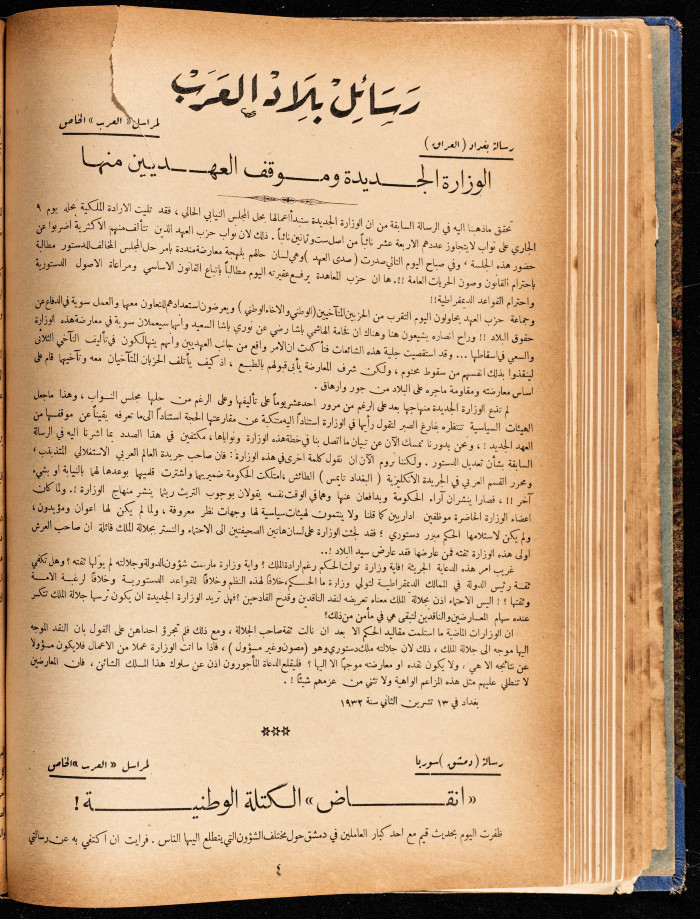 رَسَائِلْ بِلَادْ العَرَبْ
لمراسل «العرب» الخاص
رسالة بغداد (العراق)
الوزارة الجـديدة وموقف العهـديين منها
تحقق ماذهبنا اليه في الرسالة السابقة من ان الوزارة الجديدة ستبدأ اعمالها بحل المجلس النيابي الحالي ، فقد تليت الارادة الملكية بحله يوم ٩
الجاري على نواب لايتجاوز عددهم الاربعة عشر نائباً من اصل ست وثمانين نائباً . ذلك لان نواب حزب العهد الذين تتألف منهم الأكثرية أضربوا عن
حضور هذه الجلسة ، وفي صباح اليوم التالي صدرت (صدى العهد) وهي لسان حالهم بلهجة معارضة منددة بامر حل المجلس المخالف للدستور مطالبة
باحترام القانون وصون الحريات العامة !!. ها ان حزب المعاهدة يرفع عقيرته اليوم مطالباً باتباع القانون الاساسي ومراعاة الاصول الدستورية
واحترام القواعد الديمقراطية !!
وجماعة حزب العهد يحاولون اليوم التقرب من الحزبين المتآخيين (الوطني والاخاء الوطني) ويعرضون استعدادهم للتعاون معها والعمل سوية في الدفاع عن
حقوق البلاد !! وراح انصاره يشيعون هنا وهناك ان فخامة الهاشمي باشا رضي عن نوري باشا السعيد وأنهما سيعملان سوية في معارضة هذه الوزارة
والسعي في اسقاطها ... وقد استقصيت جلية هذه الشائعات فتأكدت ان الامر واقع من جانب العهديين وأنهم يتهالكون في تأليف التآخي الثلاثي
لينقذوا بذلك انفسهم من سقوط محتوم ، ولكن شرف المعارضة يأبى قبولهم بالطبع ، اذ كيف يأتلف الحزبان المتآخيان معه وتآخيهما قام على
اساس معارضته ومقاومة ماجره على البلاد من جور وارهاق .
لم تذع الوزارة الجديدة منهاجها بعد على الرغم من مرور احد عشر يوماً على تأليفها وعلى الرغم من حلها مجلس النـواب ، وهذا ماجعل
الهيئات السياسية تنتظره بفارغ الصبر لتقول رأيها في الوزارة استناداً اليه متنكبة عن مقارعتها الحجة استناداً الى ما تعرفه يقيناً عن موقفها من
العهد الجديد ! ، ونحن بدورنا نمسك الآن عن تبيان ما اتصل بنا في خطة هذه الوزارة ونواياها ، مكتفين في هذا الصدد بما اشرنا اليه في الرسالة
السابقة بشأن تعديل الدستور . ولكننا نروم الآن ان نقول كلمة اخرى في هذه الوزارة : فان صاحب جريدة العالم العربي الاستغلالي المتذبذب ،
ومحرر القسم العربي في الجريدة الأنكليزية (البغداد تايمس) الطائش ، امتلكت الحكومة ضميريهما واشترت قلميهما بوعدها لهما بالنيابة او بشيء
آخر !! ، فصارا ينشران آراء الحكومة ويدافعان عنها وهما في الوقت نفسه يقولان بوجوب التريث ريثما ينشر منهاج الوزارة !. ولما كان
اعضاء الوزارة الحاضرة موظفين اداريين كما قلنا ولا ينتمون لهيئات سياسية لها وجهات نظر معروفة ، ولما لم يكن لها اعوان ومؤيدون ،
ولم يكن لاستلامها الحكم مبرر دستوري ؟ فقد لجئت الوزارة على لسان هاتين الصحيفتين الى الاحتماء والتستر بجلالة الملك قائلة ان صاحب العرش
اولى هذه الوزارة ثقته فمن عارضها فقد عارض سيد البلاد !..
غريب امر هذه الدعاية الجريئة ! فاية وزارة تولت الحكم رغم ارادة الملك ؟ واية وزارة مارست شؤون الدولة وجلالته لم يولها ثقته ؟ وهل تكفي
ثقة رئيس الدولة في الممالك الديمقراطية لتولي وزارة ما الحكم خلافاً لهذه النظم وخلافاً للقواعد الدستورية وخلافاً لرغبة الأمة
وثقتها ؟ ! اليس الاحتماء اذن بجلالة الملك معناه تعريضه لنقد الناقدين وقدح القادحين ؟ فهل تريد الوزارة الجديدة ان يكون ترسها جلالة الملك تتكسر
عنده سهام المعـارضين والناقدين لتبقى هي في مأمن من ذلك ؟
ان الوزارات الماضية ما استلمت مقاليد الحكم الا بعد ان نالت ثقة صاحب الجلالة ، ومع ذلك فلم تجرؤ احداهن على القول بان النقد الموجه
اليها موجه الى جلالة الملك ، ذلك لان جلالته ملك دستوري وهو (مصون وغير مسؤول) ، فاذا ما اتت الوزارة عملا من الاعمال فلايكون مسؤولا
عن نتائجه الا هي ، ولا يكون نقده او معارضته موجهاً الا اليها ! فليقلع الدعاة المأجورون اذن عن سلوك هذا المسلك الشائن ، فان المعارضين
لا تنطلي عليهم مثل هذه المزاعم الواهية ولا تثني من عزمهم شيئاً ! .
بغداد في ١٣ تشرين الثاني سنة ١٩٣٢
***
رسالة (دمشق) سوريا
لمراسل «العرب» الخاص
«انقـاض» الكتلة الوطنيـة !
ظفرت اليوم بحديث قيم مع احد كبار العاملين في دمشق حول مختلف الشؤون التي يتطلع اليها الناس . فرايت ان اكتفي به عن رسالتي
٤